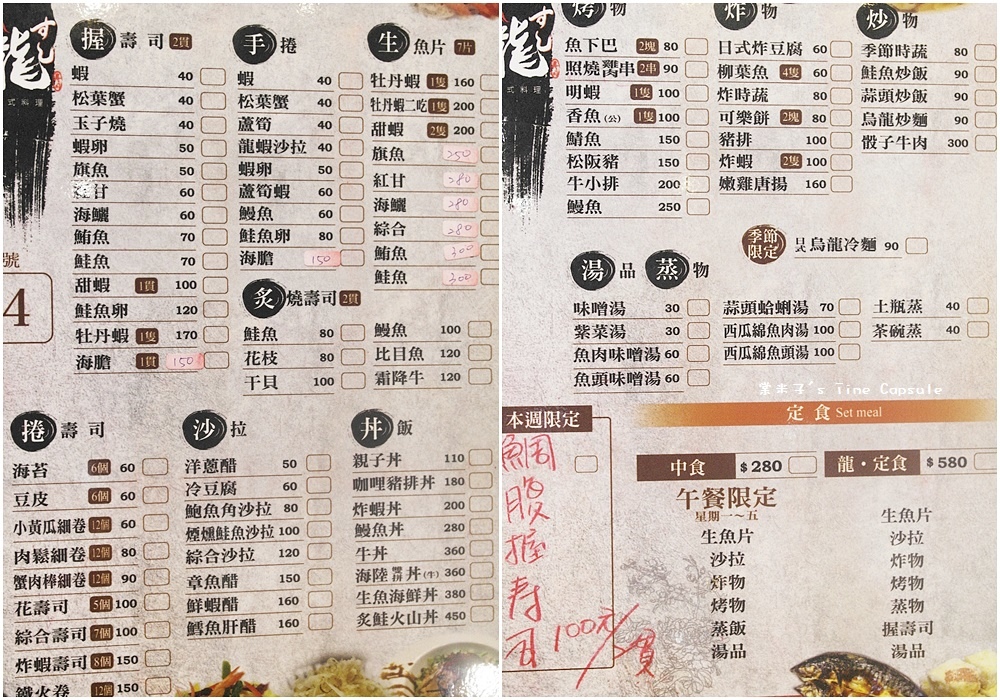 すし
龍
式料理
號
4
握 壽司 2貫
蝦 40
松葉蟹 40
玉子燒 40
蝦卵 50
旗魚 50
紅甘 60
海鱺 60
鮪魚 70
鮭魚 70
甜蝦 1貫 100
鮭魚卵 120
牡丹蝦 1隻 170
海膽 1貫 150
手 捲
蝦 40
松葉蟹 40
蘆筍 40
龍蝦沙拉 40
蝦卵 50
蘆筍蝦 60
鰻魚 60
鮭魚卵 80
海膽 150
生 魚片 7片
牡丹蝦 1隻 160
牡丹蝦二吃 1隻 200
甜蝦 2隻 200
旗魚 250
紅甘 280
海鱺 280
綜合 280
鮪魚 300
鮭魚 300
炙 燒壽司 2貫
鮭魚 80
花枝 80
干貝 100
鰻魚 100
比目魚 120
霜降牛 120
捲 壽司
海苔 6個 60
豆皮 6個 60
小黃瓜細卷 12個 60
肉鬆細卷 12個 80
蟹肉棒細卷 12個 90
花壽司 5個 100
綜合壽司 7個 100
炸蝦壽司 8個 150
鐵火卷 12個 150
沙 拉
洋蔥醋 50
冷豆腐 60
鮑魚角沙拉 80
煙燻鮭魚沙拉 100
綜合沙拉 120
章魚醋 150
鮮蝦醋 160
鱈魚肝醋 160
丼 飯
親子丼 110
咖哩豬排丼 180
炸蝦丼 200
鰻魚丼 280
牛丼 360
海陸雙拼丼(牛) 360
生魚海鮮丼 380
炙鮭火山丼 450
龍
式料理
烤 物
魚下巴 2塊 80
照燒雞串 2串 90
明蝦 1隻 100
香魚(公) 1隻 100
鯖魚 150
松阪豬 150
牛小排 200
鰻魚 250
炸 物
日式炸豆腐 60
柳葉魚 4隻 60
炸時蔬 80
可樂餅 2塊 80
豬排 100
炸蝦 2隻 100
嫩雞唐揚 160
炒 物
季節時蔬 80
鮭魚炒飯 90
蒜頭炒飯 90
烏龍炒麵 90
骰子牛肉 300
季節限定 日式烏龍冷麵 90
湯 品 蒸 物
味噌湯 30
紫菜湯 30
魚肉味噌湯 60
魚頭味噌湯 60
蒜頭蛤蜊湯 70
西瓜綿魚肉湯 100
西瓜綿魚頭湯 100
土瓶蒸 40
茶碗蒸 40
葉未子's Time Capsule
本週限定
鯛
腹
握
寿
司 100元/貫
定食 Set meal
中食 $280
午餐限定
星期一～五
生魚片
沙拉
炸物
烤物
蒸飯
湯品
龍・定食 $580
生魚片
沙拉
炸物
烤物
蒸物
握壽司
湯品